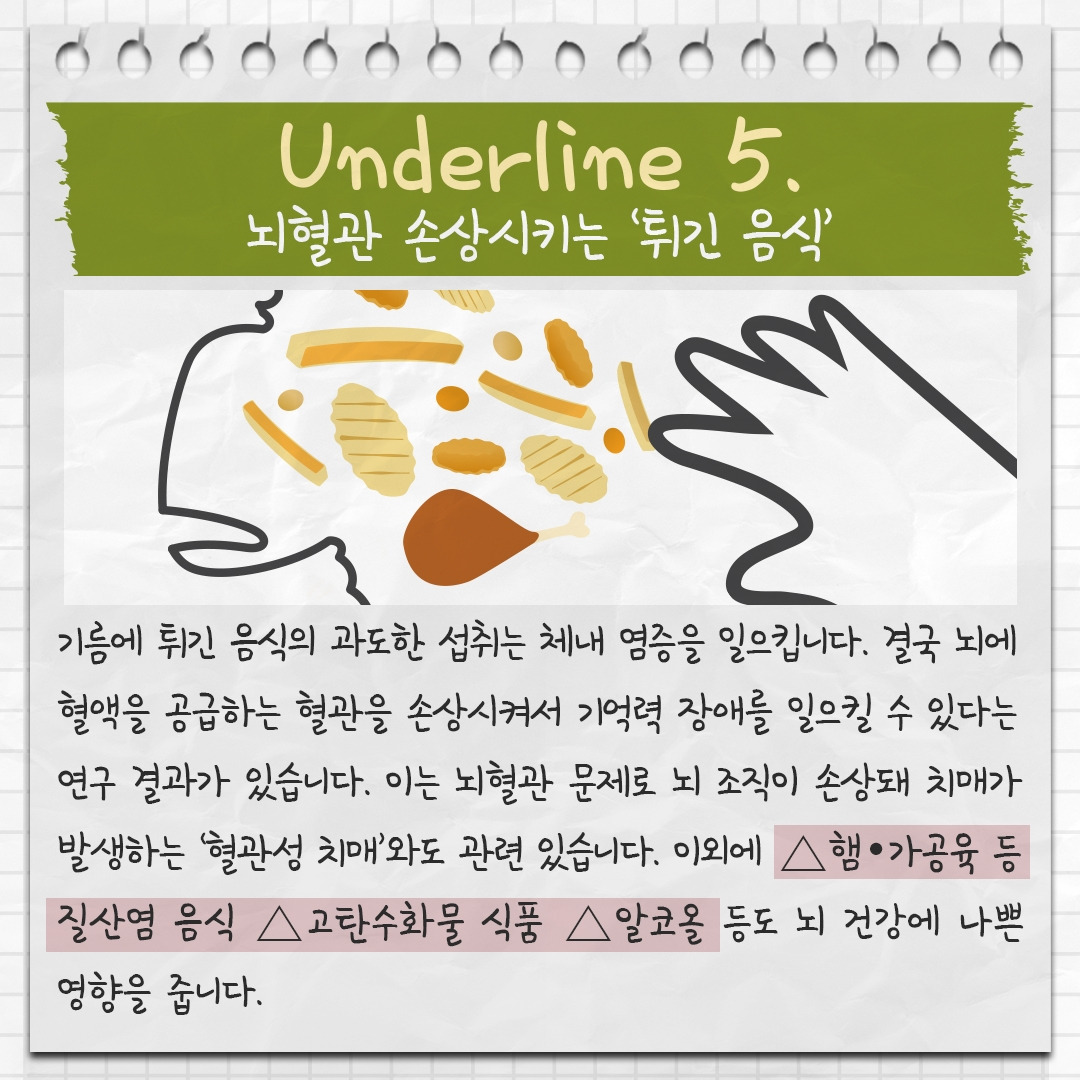 Underline 5.
뇌혈관 손상시키는 ‘튀긴 음식’
기름에 튀긴 음식의 과도한 섭취는 체내 염증을 일으킵니다. 결국 뇌에
혈액을 공급하는 혈관을 손상시켜서 기억력 장애를 일으킬 수 있다는
연구 결과가 있습니다. 이는 뇌혈관 문제로 뇌 조직이 손상돼 치매가
발생하는 ‘혈관성 치매’와도 관련 있습니다. 이외에 △햄•가공육 등
질산염 음식 △고탄수화물 식품 △알코올 등도 뇌 건강에 나쁜
영향을 줍니다.